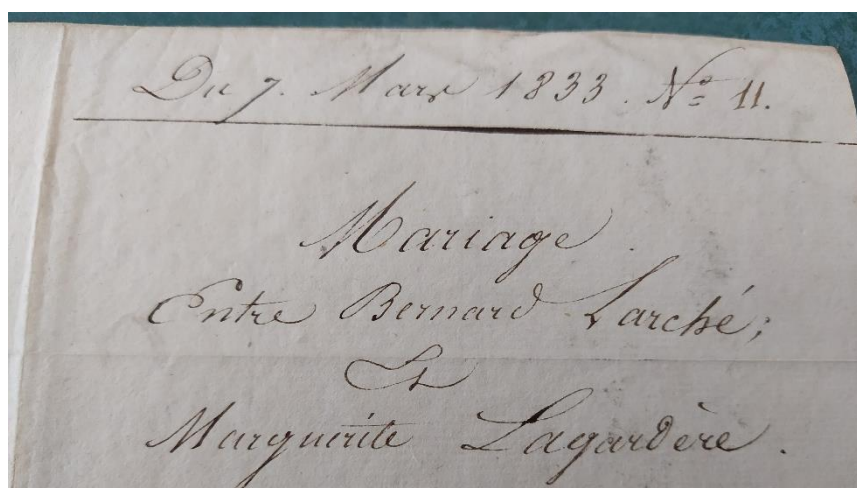 Du 7. Mars 1833. Nº 11.
Mariage
Entre Bernard Larché;
Et
Marguerite Lagardère.